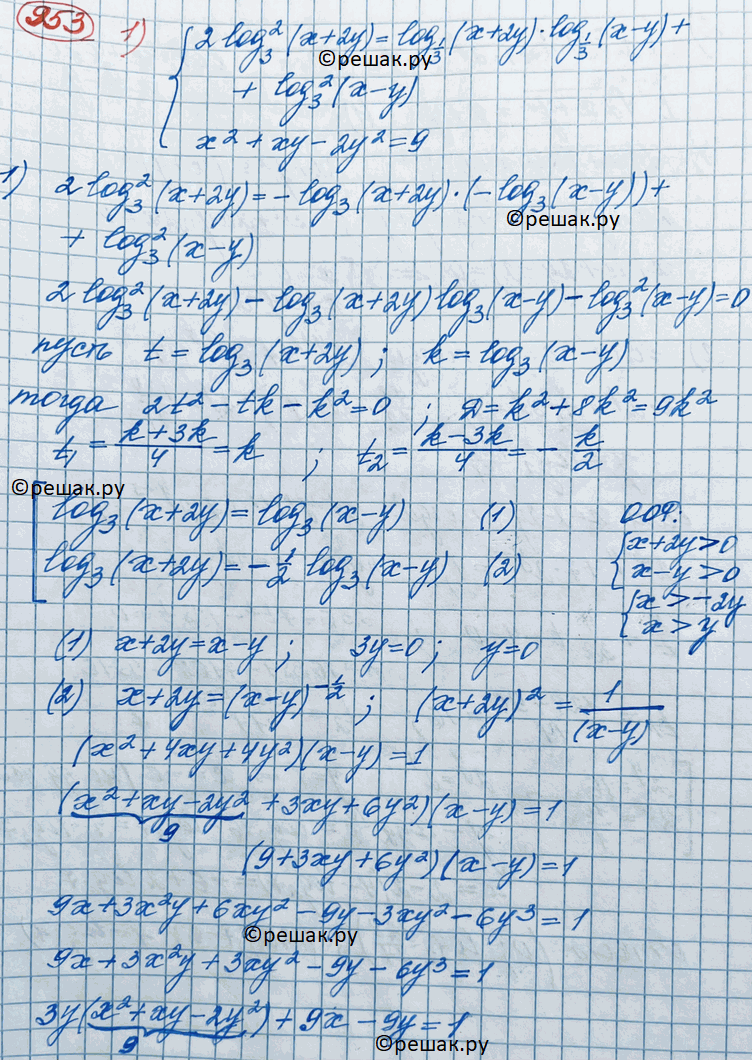 953 1) { 2 log₃²(x+2y) = log_{1/3}(x+2y)·log_{1/3}(x−y) +
©решак.ру
+ log₃²(x−y)
x² + xy − 2y² = 9
1) 2 log₃²(x+2y) = −log₃(x+2y)·(−log₃(x−y)) +
©решак.ру
+ log₃²(x−y)
2 log₃²(x+2y) − log₃(x+2y) log₃(x−y) − log₃²(x−y) = 0
пусть t = log₃(x+2y) ; k = log₃(x−y)
тогда 2t² − tk − k² = 0 ; D = k² + 8k² = 9k²
t₁ = (k+3k)/4 = k ; t₂ = (k−3k)/4 = − k/2
©решак.ру
[ log₃(x+2y) = log₃(x−y) (1) ООФ:
log₃(x+2y) = −1/2 log₃(x−y) (2) { x+2y > 0
x−y > 0
{ x > −2y
x > y
(1) x+2y = x−y ; 3y = 0 ; y = 0
(2) x+2y = (x−y)^{−1/2} ; (x+2y)² = 1/(x−y)
(x² + 4xy + 4y²)(x−y) = 1
(x² + xy − 2y² + 3xy + 6y²)(x−y) = 1
9
(9 + 3xy + 6y²)(x−y) = 1
9x + 3x²y + 6xy² − 9y − 3xy² − 6y³ = 1
©решак.ру
9x + 3x²y + 3xy² − 9y − 6y³ = 1
3y(x² + xy − 2y²) + 9x − 9y = 1
9
©решак.ру